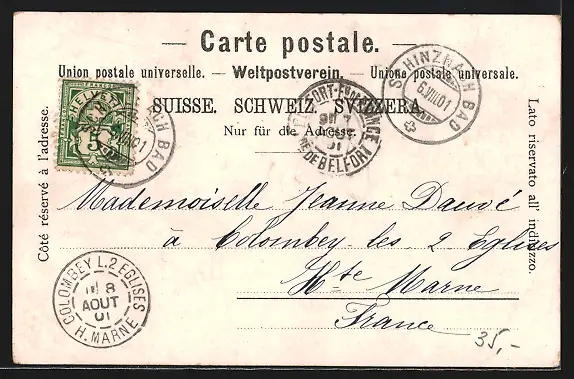 — Carte postale. —
Union postale universelle. — Weltpostverein. — Unione postale universale.
SUISSE. SCHWEIZ. SVIZZERA.
Nur für die Adresse.
Côté réservé à l'adresse.
Lato riservato all' indirizzo.
SCHINZNACH BAD
6.VIII.01
BELFORT
COLOMBEY L. 2 EGLISES
8
AOUT
01
H. MARNE
HELVETIA
5
Mademoiselle Jeanne Dauvé
à Colombey les 2 Eglises
Hte Marne
France
35,-